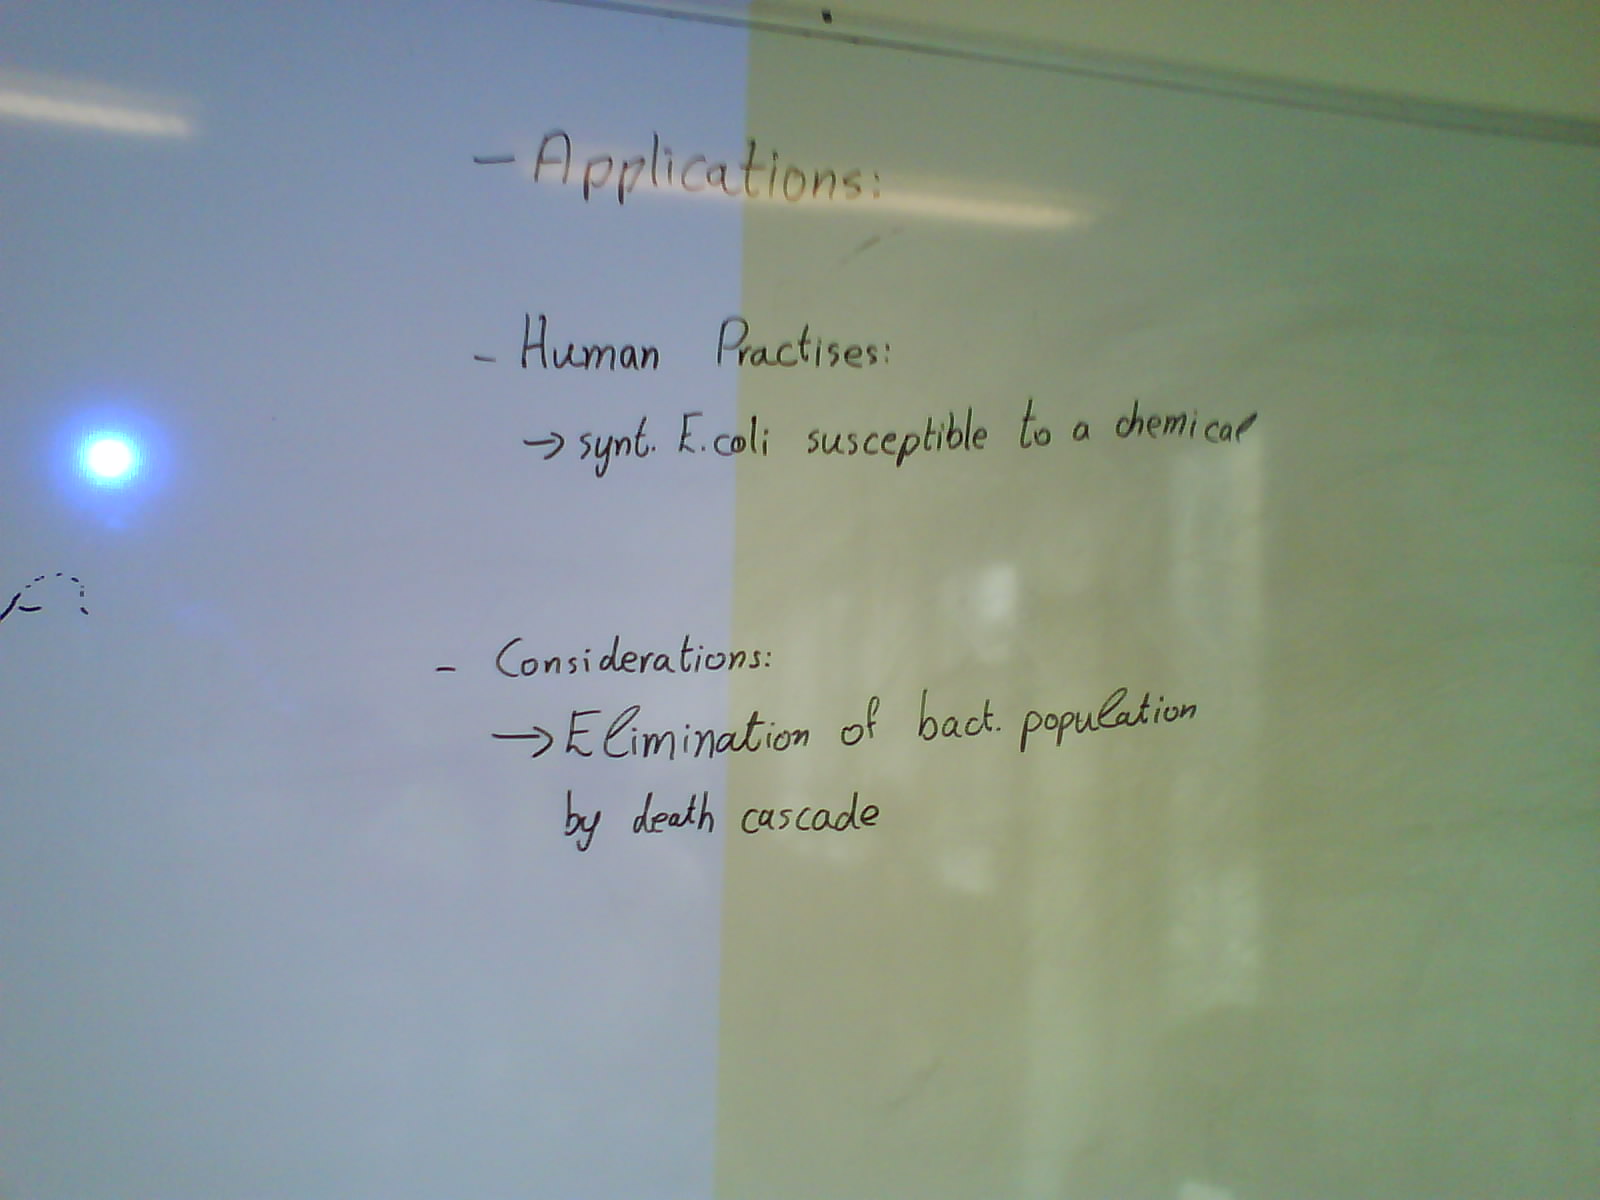 - Applications:
- Human Practises:
→ synt. E.coli susceptible to a chemical
- Considerations:
→ Elimination of bact. population
by death cascade